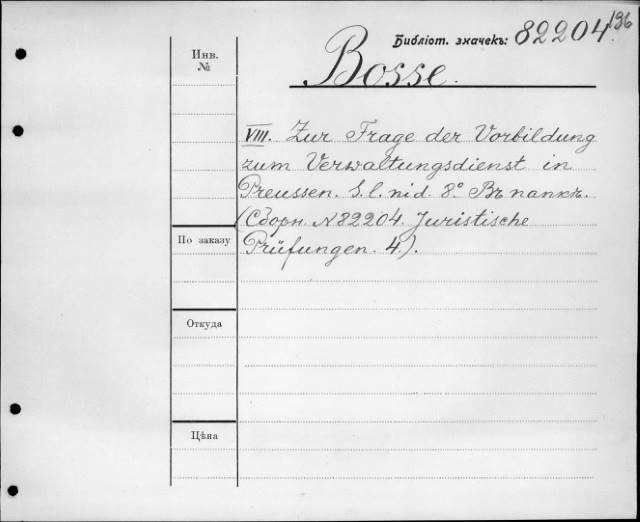 Библіот. значекъ: 82204/196
Инв.
№
Bosse.
VIII. Zur Frage der Vorbildung
zum Verwaltungsdienst in
Preussen. S. l. nid. 8°. Въ папкѣ.
(Сборн. №82204. Juristische
Prüfungen. 4.).
По заказу
Откуда
Цѣна